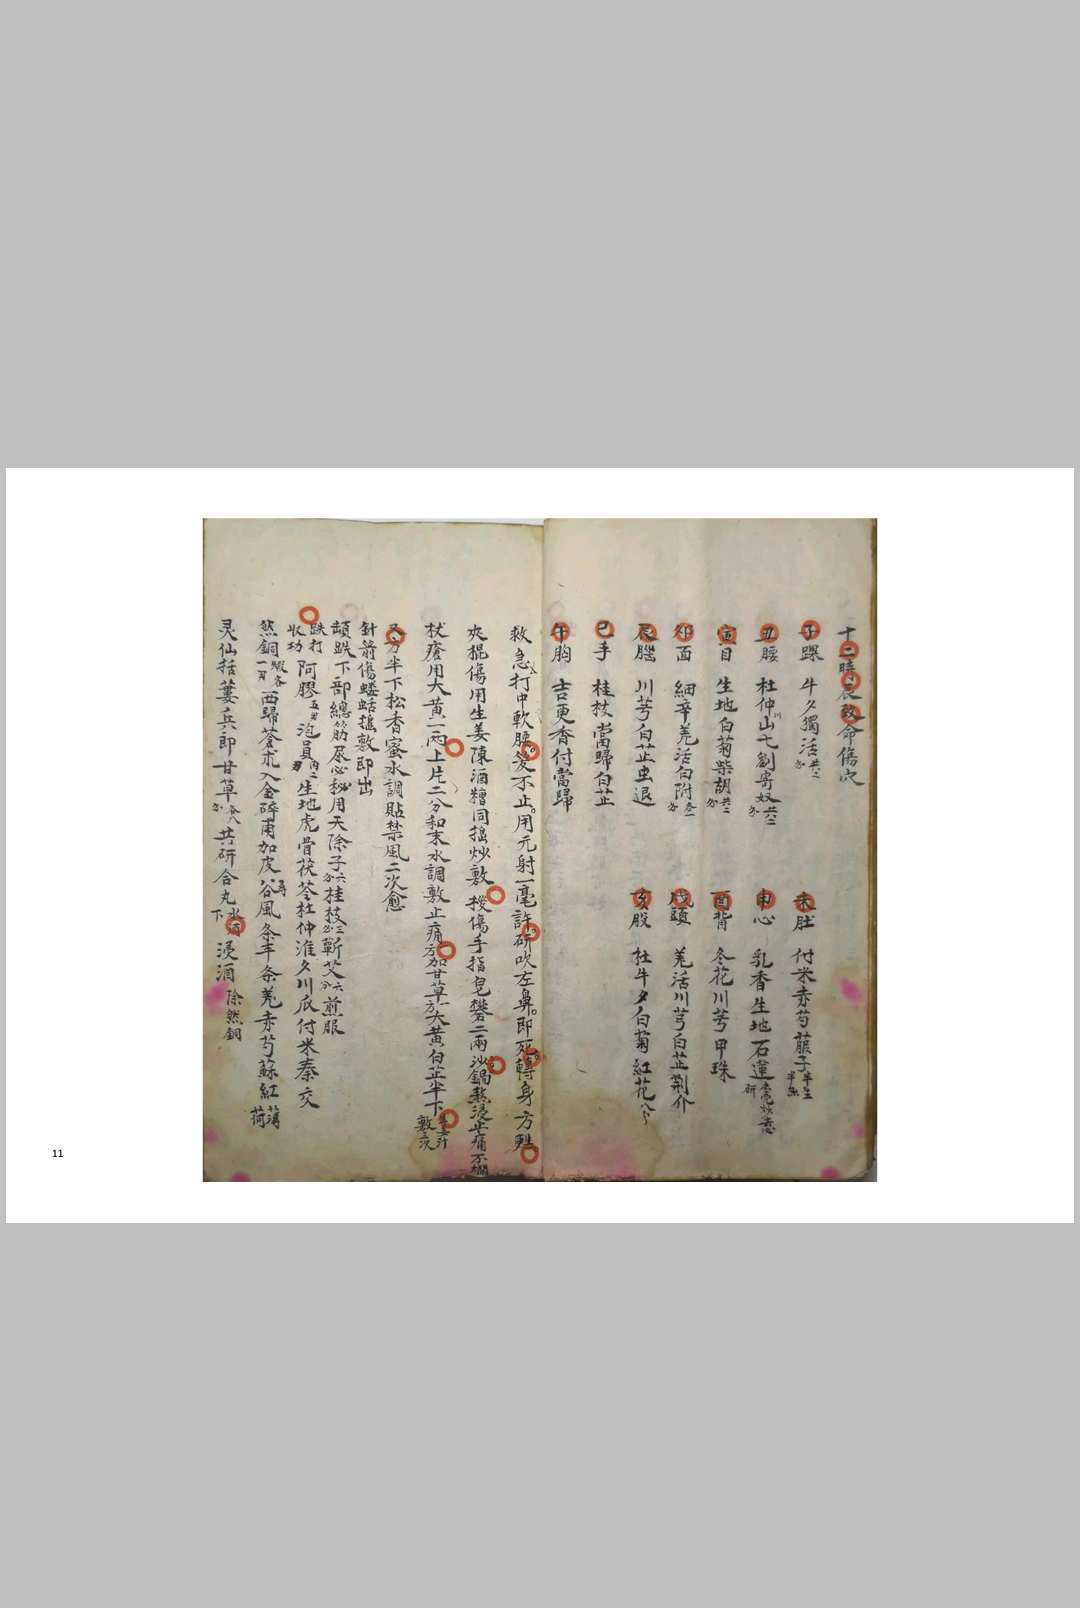 十二時辰致命傷穴
子踝 牛夕獨活共二分
丑腰 杜仲山七劉寄奴共三分
寅目 生地白菊柴胡共二分
卯面 細辛羌活白附叁一分
辰腦 川芎白芷虫退
巳手 桂枝當歸白芷
午胸 吉更香付當歸
未肚 付米赤芍 子半生半
申心 乳香生地石蓮 研
酉背 冬花川芎甲珠
戌頭 羌活川芎白芷荆介
亥股 杜牛夕白菊紅花八分
救急打中軟腰笑不止用元射一毫許研吹左鼻即死轉身方甦
夾棍傷用生姜陳酒糟同搗炒敷 授傷手指皂礬二兩沙鍋熬浸止痛不爛
杖瘡用大黄一兩上片二分和末水調敷止痛 方加甘草 方大黄白芷半下 姜汁敷三次
又方半下松香蜜水調貼禁風二次愈
針箭傷螻蛄搥敷即出
顛跌下部總筋尿必秘用天除子六分桂枝三分蘄艾六分煎服
跌打收功 阿膠五 泡員肉二 生地虎骨茯苓杜仲淮夕川瓜付米秦交
然銅一 西歸蒼朮入金碎甫加皮谷風条羊条羌赤芍蘇紅薄荷
灵仙括蔞兵郎甘草各八分共研合丸水酒下 浸酒除然銅
11